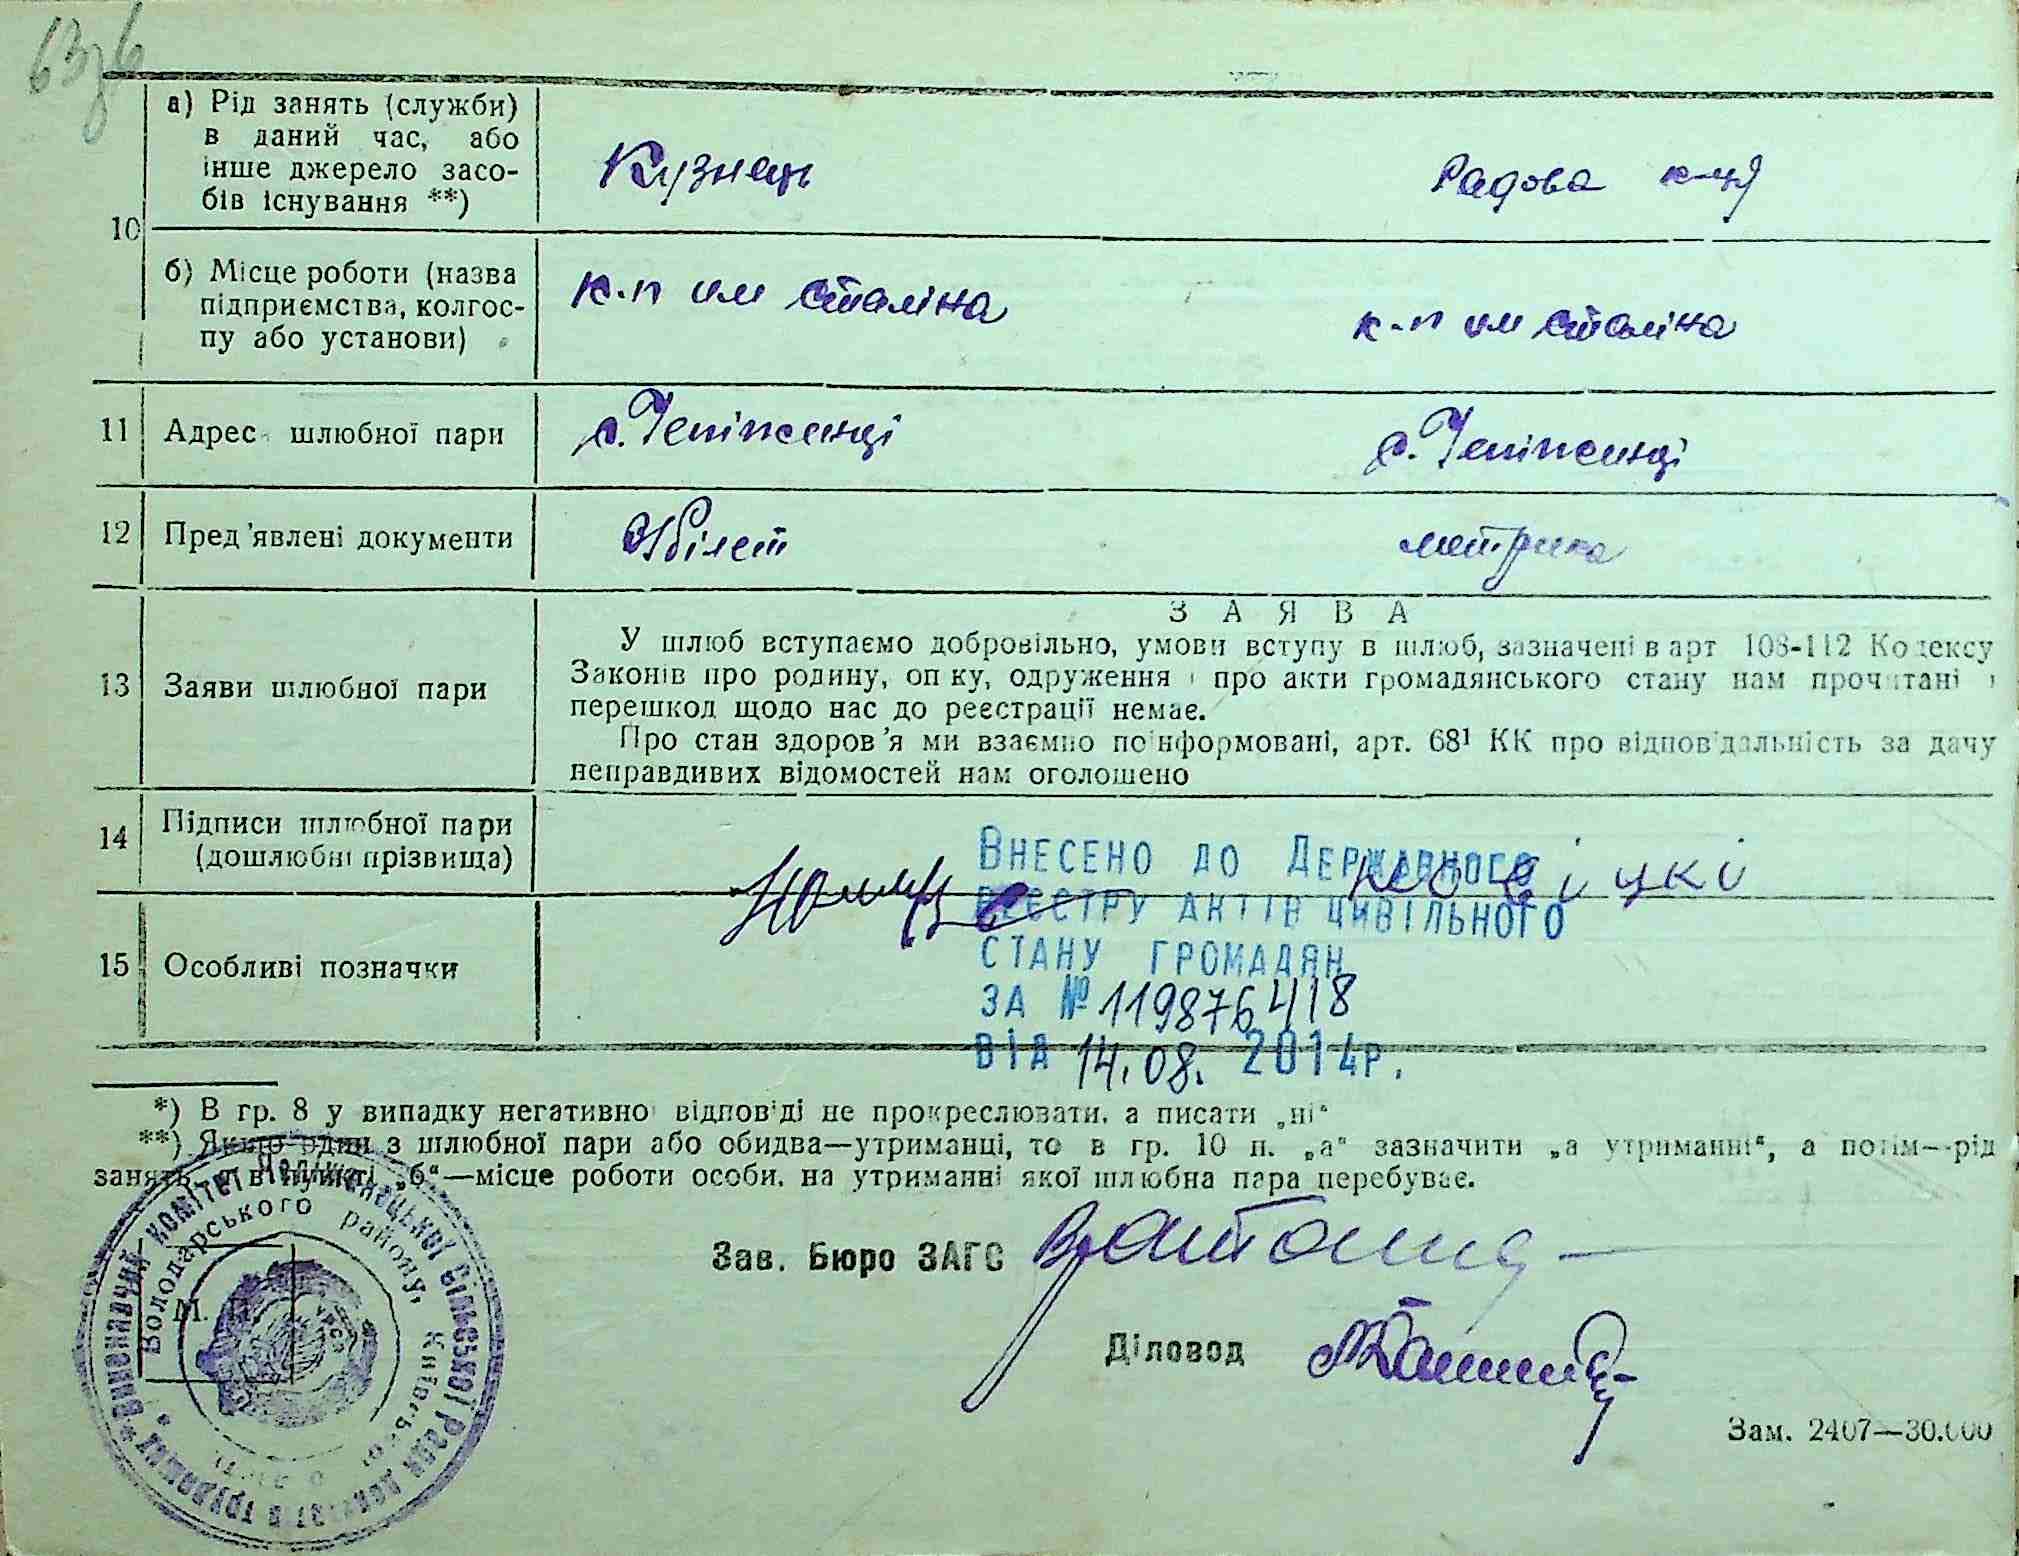 а) Рід занять (служби)
в даний час, або
інше джерело засо-
бів існування **)
Кузнець
Радова к-ця
10
б) Місце роботи (назва
підприємства, колгос-
пу або установи)
к-п им Сталіна
к-п им Сталіна
11 Адрес шлюбної пари
с. Чепіжинці
с. Чепіжинці
12 Пред'явлені документи
білет
метрика
ЗАЯВА
13 Заяви шлюбної пари
У шлюб вступаємо добровільно, умови вступу в шлюб, зазначені в арт 108-112 Кодексу
Законів про родину, оп ку, одруження і про акти громадянського стану нам прочитані і
перешкод щодо нас до реєстрації немає.
Про стан здоров'я ми взаємно поінформовані, арт. 68¹ КК про відповідальність за дачу
неправдивих відомостей нам оголошено
14 Підписи шлюбної пари
(дошлюбні прізвища)
Внесено до Державного
реєстру актів цивільного
стану громадян
за № 119876418
від 14.08. 2014р.
15 Особливі позначки
*) В гр. 8 у випадку негативної відповіді не прокреслювати, а писати „ні“
**) Якщо один з шлюбної пари або обидва—утриманці, то в гр. 10 п. „а“ зазначити „а утриманні“, а потім—рід
занять, а в пункті „б“—місце роботи особи, на утриманні якої шлюбна пара перебуває.
Виконавчий комітет Чепіжинецької сільської Ради депутатів трудящих
Володарського району, Київської області
УРСР
М. П.
Зав. Бюро ЗАГС
Діловод
Зам. 2407—30.000